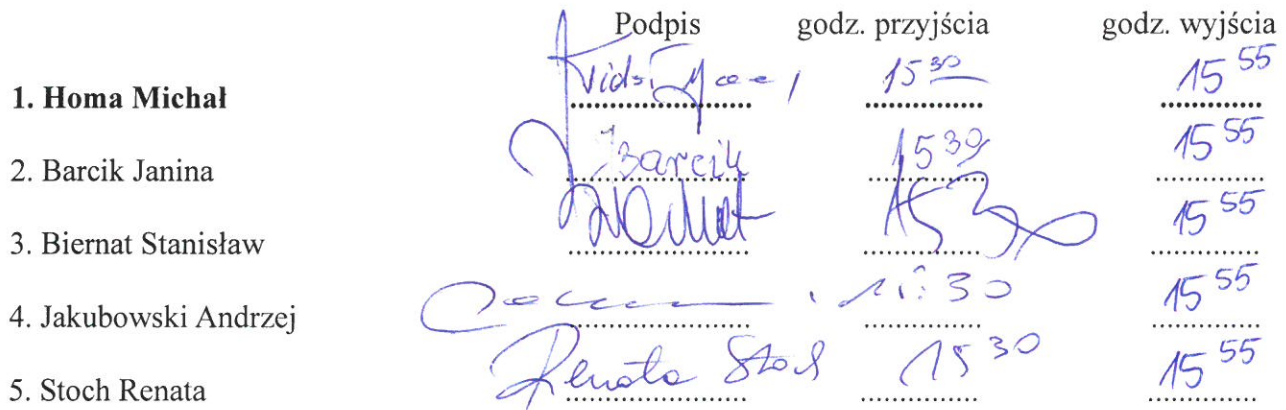 Podpis godz. przyjścia godz. wyjścia
1. Homa Michał ........ 15 30 15 55
2. Barcik Janina Barcik 15 30 15 55
3. Biernat Stanisław ........ 15 30 15 55
4. Jakubowski Andrzej ........ 15 55
5. Stoch Renata Renata Stoch 15 30 15 55